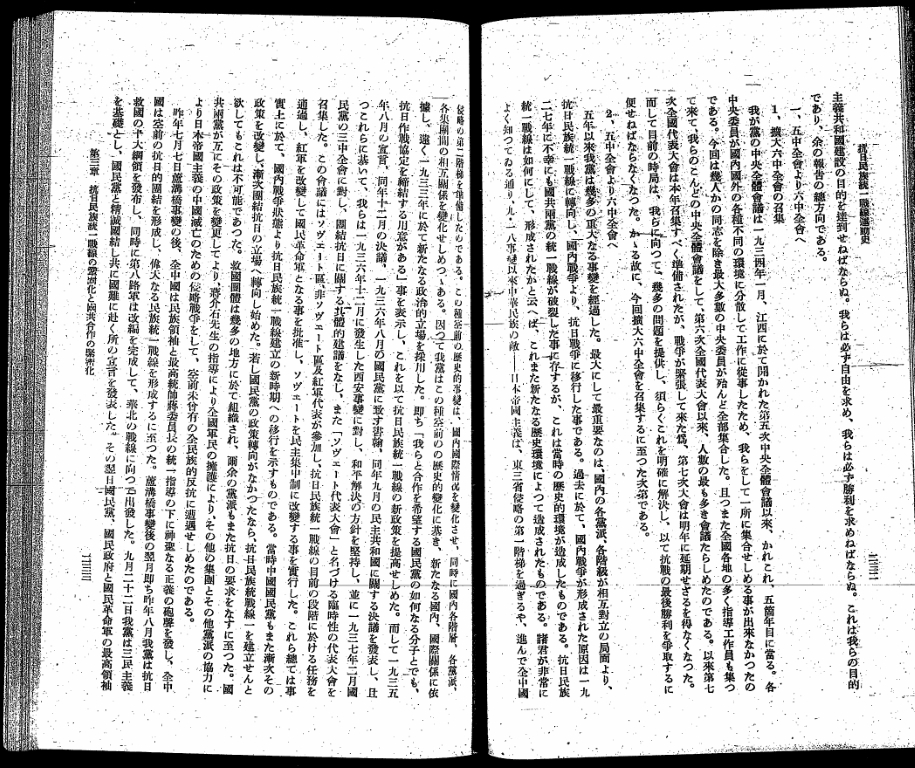 抗日民族統一戰線運動史
主義共和國建設の目的を達到せねばならぬ。我らは必ず自由を求め、我らは必ず勝利を求めねばならぬ。これは我らの目的
であり、余の報告の總方向である。
一、五中全會より六中全會へ
1、擴大六中全會の召集
我が黨の中央全體會議は一九三四年一月、江西に於て開かれた第五次中央全體會議以來、かれこれ、五箇年目に當る。各
中央委員が國內國外の各種不同の環境に分散して工作に從事したため、我らをして一所に集合せしめる事が出來なかつたの
である。今回は幾人かの同志を除き最大多數の中央委員が殆んど全部集合した。且つまた全國各地の多く指導工作員も集つ
て來て、我らのこんどの中央全體會議をして第六次全國代表大會以來、人數の最も多き會議たらしめたのである。以來第七
次全國代表大會は本年召集すべく準備されたが、戰爭が緊張して來た爲、第七次大會は明年に延期せざるを得なくなつた。
而して目前の時局は、我らに向つて、幾多の問題を提供し、須らくこれを明確に解決し、以て抗戰の最後勝利を爭取するに
便せねばならなくなつた。かゝる故に、今回擴大六中全會を召集するに至つた次第である。
2、五中全會より六中全會へ
五年以來我黨は幾多の重大なる事變を經過した。最大にして最重要なのは、國內の各黨派、各階級が相互對立の局面より、
抗日民族統一戰線に轉向し、國內戰爭より、抗日戰爭に移行した事である。過去に於て、國內戰爭が形成された原因は一九
二七年に不幸にも國共兩黨の統一戰線が破裂した事に存するが、これは當時の歷史的環境が造成したものである。抗日民族
統一戰線は如何にして、形成されたかと云へば、これまた新たなる歷史環境によつて造成されたもの である。諸君が非常に
よく知つてゐる通り、九・一八事變以來中華民族の敵——日本帝國主義は、東三省侵略の第一階梯を過ぎるや、進んで全中國
侵略の第二階梯を準備したのである。この種空前の歷史的事變は、國內國際情況を變化させ、同時に國內各階層、各黨派、
各集團間の相互關係を變化せしめつゝある。因つて我黨はこの種空前のの歷史的變化に基き、新たなる國內、國際關係に依
據し、遠く一九三三年に於て新たなる政治的立場を採用した。即ち「我らと合作を希望する國民黨の如何なる分子とでも、
抗日作戰協定を締結する用意がある」事を表示し、これを以て抗日民族統一戰線の新政策を提高せしめた。而して一九三五
年八月の宣言、同年十二月の決議、一九三六年八月の國民黨に致す書翰、同年九月の民主共和國に關する決議を發表し、且
つこれらに基いて、我らは一九三六年十二月に發生した西安事變に對し、和平解決の方針を堅持し、並に一九三七年二月國
民黨の三中全會に對し、團結抗日に關する具體的建議をなし、また「ソヴェート代表大會」と名づける臨時性の代表大會を
召集した。この會議にはソヴェート區、非ソヴェート區及紅軍代表が參加し、抗日民族統一戰線の目前の段階に於ける任務を
通過し、紅軍を改變して國民革命軍となる事を批准し、ソヴェートを民主集中制に改變する事を實行した。これら總ては事
實上に於て、國內戰爭狀態より抗日民族統一戰線建立の新時期への移行を示すものである。當時中國國民黨もまた漸次その
政策を改變し、漸次團結抗日の立場へ轉向し始めた。若し國民黨の政策轉向がなかつたなら、抗日民族統戰線一を建立せんと
欲してもこれは不可能であつた。救國團體は幾多の地方に於て組織され、爾余の黨派もまた抗日の要求をなすに至つた。國
共兩黨が互にその政策を變更してより、蔣介石先生の指導により全國軍民の擁護により、その他の集團とその他黨派の協力に
より日本帝國主義の中國滅亡のための侵略戰爭をして、空前未曾有の全民族的反抗に遭遇せしめたのである。
昨年七月七日蘆溝橋事變の後、全中國は民族領袖と最高統帥蔣委員長の統一指導の下に神聖なる正義の砲聲を發し、全中
國は空前の抗日的團結を形成し、偉大なる民族統一戰線を形成するに至つた。蘆溝橋事變後の翌月即ち昨年八月我黨は抗日
救國の十大綱領を發布し、同時に第八路軍は改編を完成して、華北の戰線に向つて出發した。九月二十二日我黨は三民主義
を基礎とし、國民黨と精誠團結し共に國難に赴く所の宣言を發表した。その翌日國民黨、國民政府と國民革命軍の最高領袖
第三章 抗日民族統一戰線の鞏固化と國共合作の緊密化